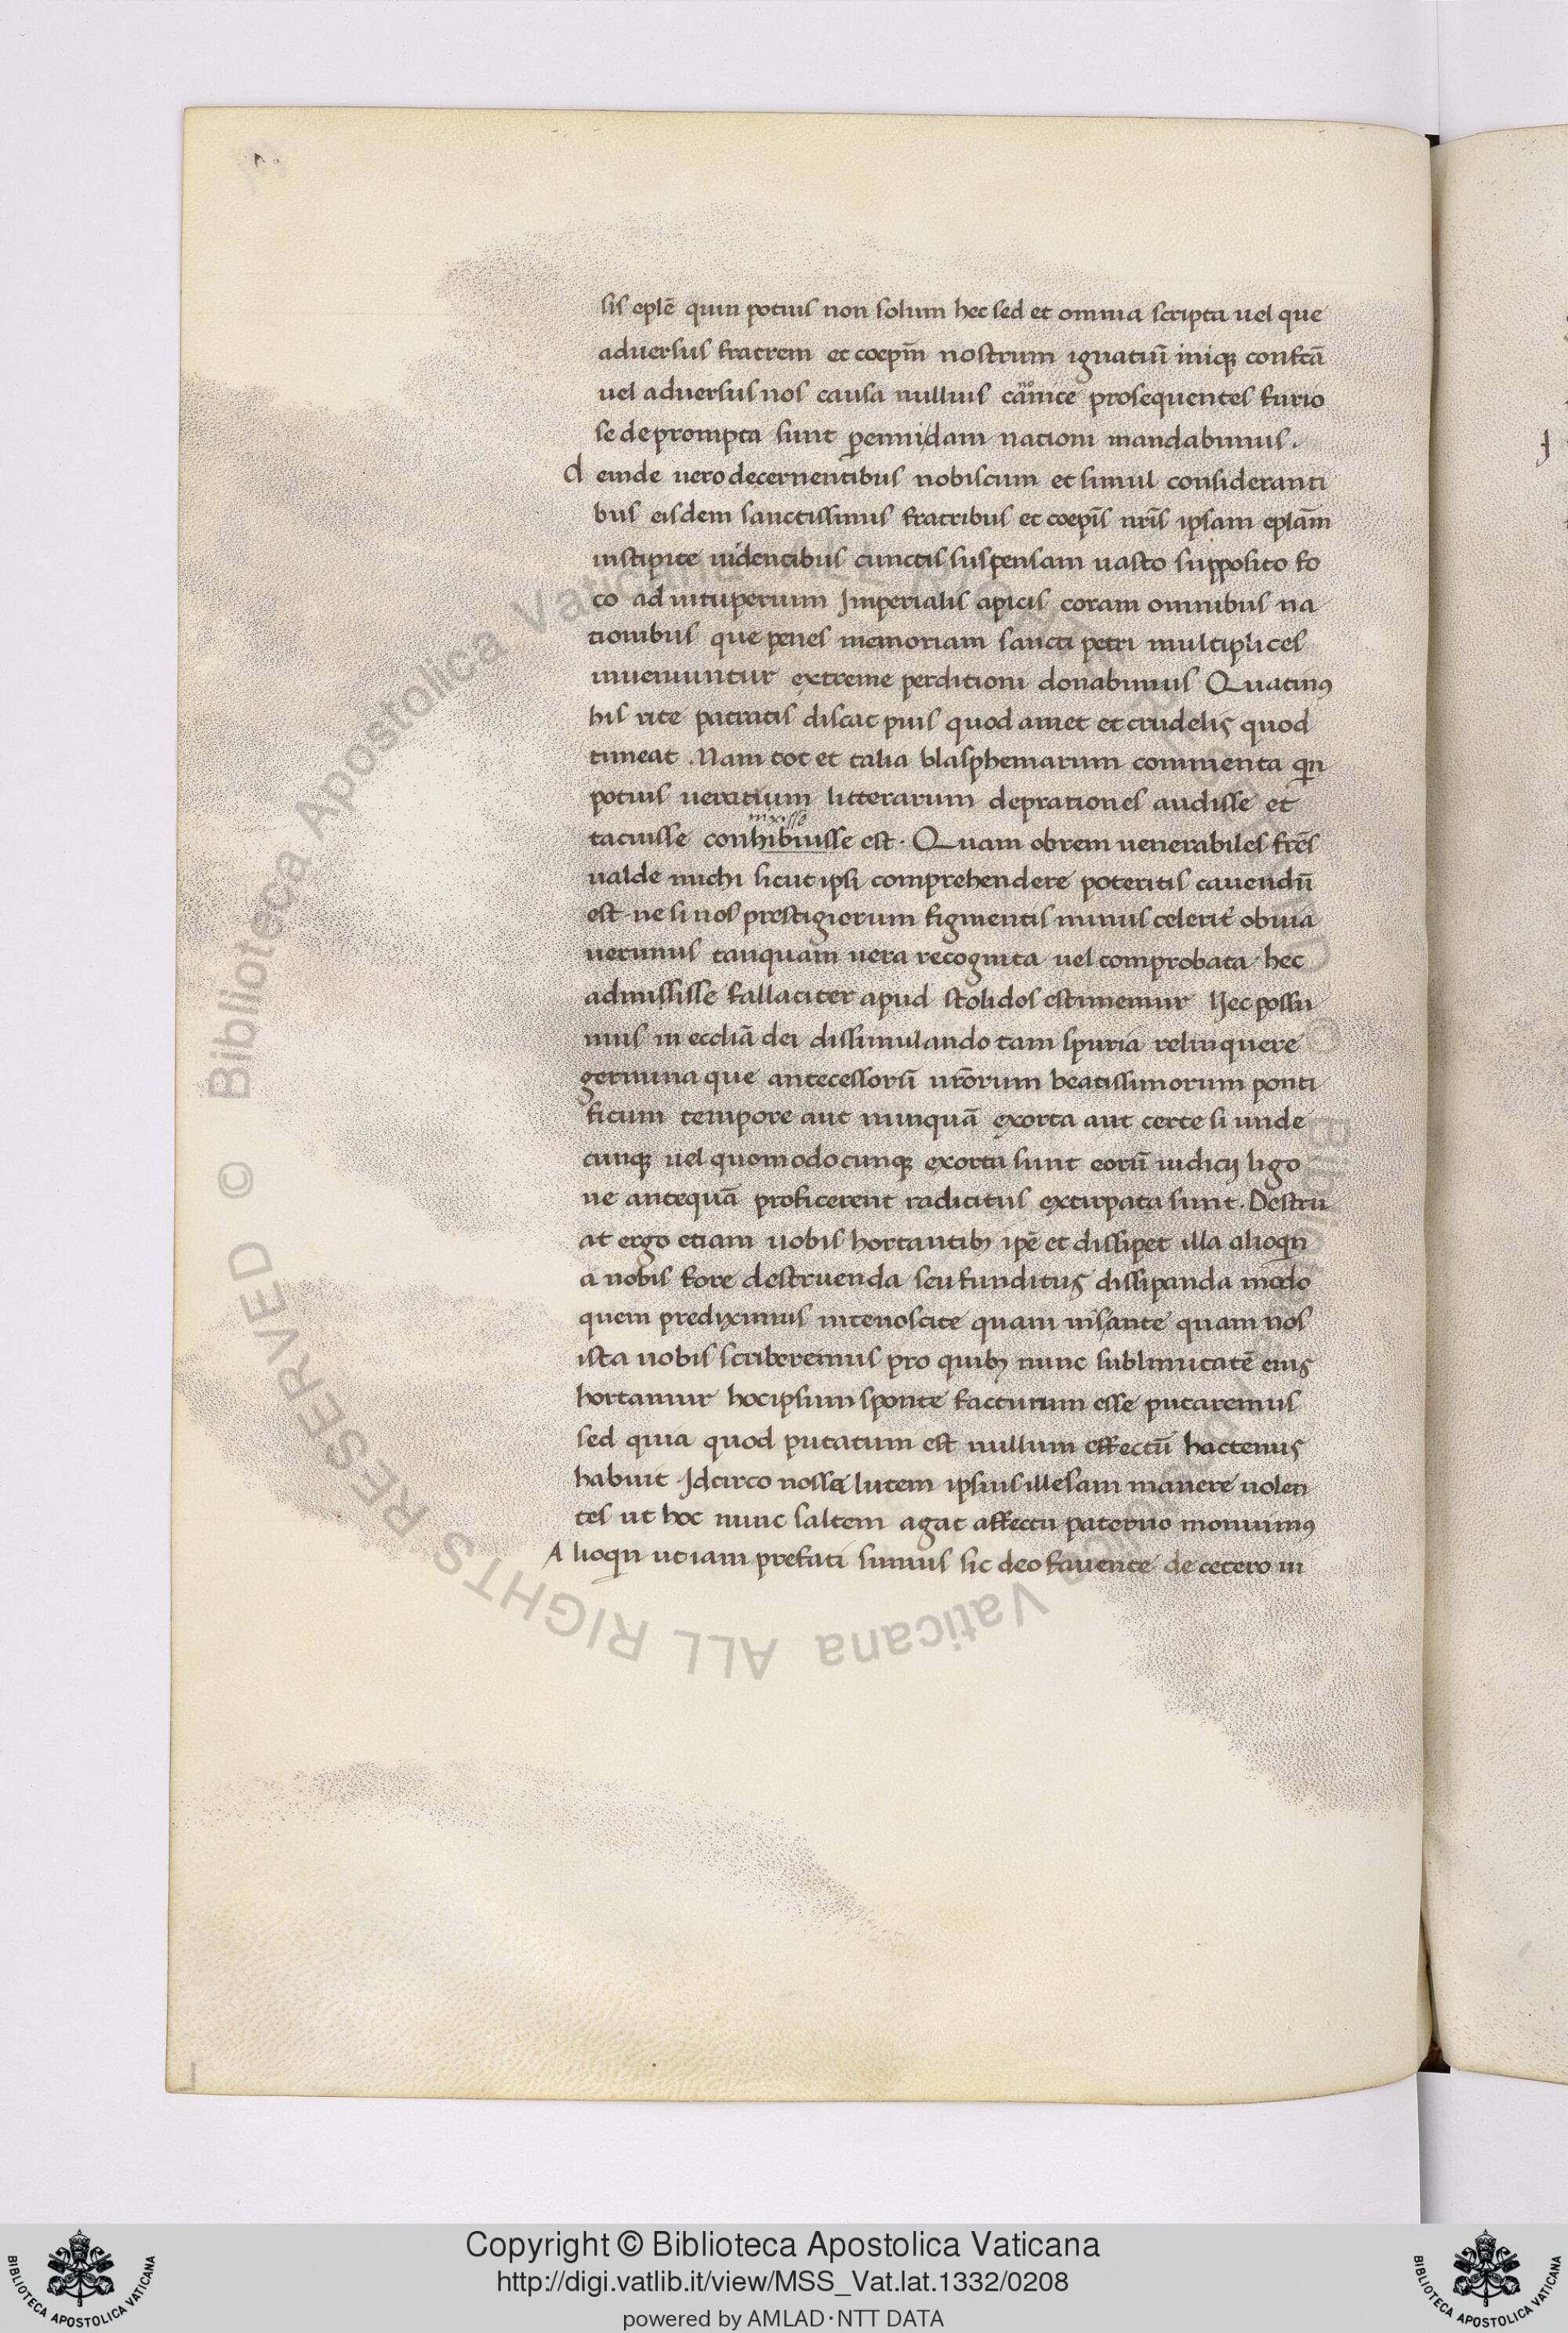 sis eplē quin potius non solum hec sed et omnia scripta vel que
adversus fratrem et coepm̄ nostrum ignatiū iniqꝫ confcā
vel adversus nos causa nullius canonice prosequentes furio
se deprompta sunt ꝑennidam nationi mandabimus.
d einde vero decernentibus nobiscum et simul consideranti
bus eisdem sanctissimis fratribus et coepīs nrīs ipsam eplām
in stipite videntibus cunctis suspensam vasto supposito fo
co ad vituperium Imperialis apicis coram omnibus na
tionibus que penes memoriam sancti petri multiplices
inveniuntur extreme perditioni donabimus Quatinꝰ
his rite patratis discat pius quod amet et crudelis quod
timeat. Nam tot et talia blasphemarum commenta qn̄
potius veracium litterarum depravationes audisse et
tacuisse conhibuisse est. Quam obrem venerabiles frēs
valde michi sicut ipsi comprehendere poteritis cavendū
est. ne si nos prestigiorum figmentis minus celerit̄ obvia
verimus tanquam vera recognita vel comprobata hec
admisisse fallaciter apud stolidos estimemur Nec possu
mus in ecclīa dei dissimulando tam spuria relinquere
germina que antecessorū nrōrum beatissimorum ponti
ficum tempore aut nunquā exorta aut certe si unde
cunqꝫ vel quomodocunqꝫ exorta sunt eorū iudicij ligo
ne antequā proficerent radicitus extirpata sunt. Destru
at ergo etiam vobis hortantibꝫ ipē et dissipet illa alioqn̄
a nobis fore destruenda seu funditus dissipanda modo
quem prediximus internoscite quam vis ante quam nos
ista vobis scriberemus pro quibꝫ nunc sublimitatē eius
hortamur hoc ipsum sponte facturum esse putaremus
sed quia quod putatum est nullum effectū hactenus
habuit Idcirco nosse lutem ipsius illesam manere volen
tes ut hoc nunc saltem agat affectu paterno monuimꝰ
A lioqn̄ ut iam prefati sumus sic deo favente de cetero in
Copyright © Biblioteca Apostolica Vaticana
http://digi.vatlib.it/view/MSS_Vat.lat.1332/0208
powered by AMLAD·NTT DATA
BIBLIOTECA APOSTOLICA VATICANA
BIBLIOTECA APOSTOLICA VATICANA
© Biblioteca Apostolica Vaticana ALL RIGHTS RESERVED